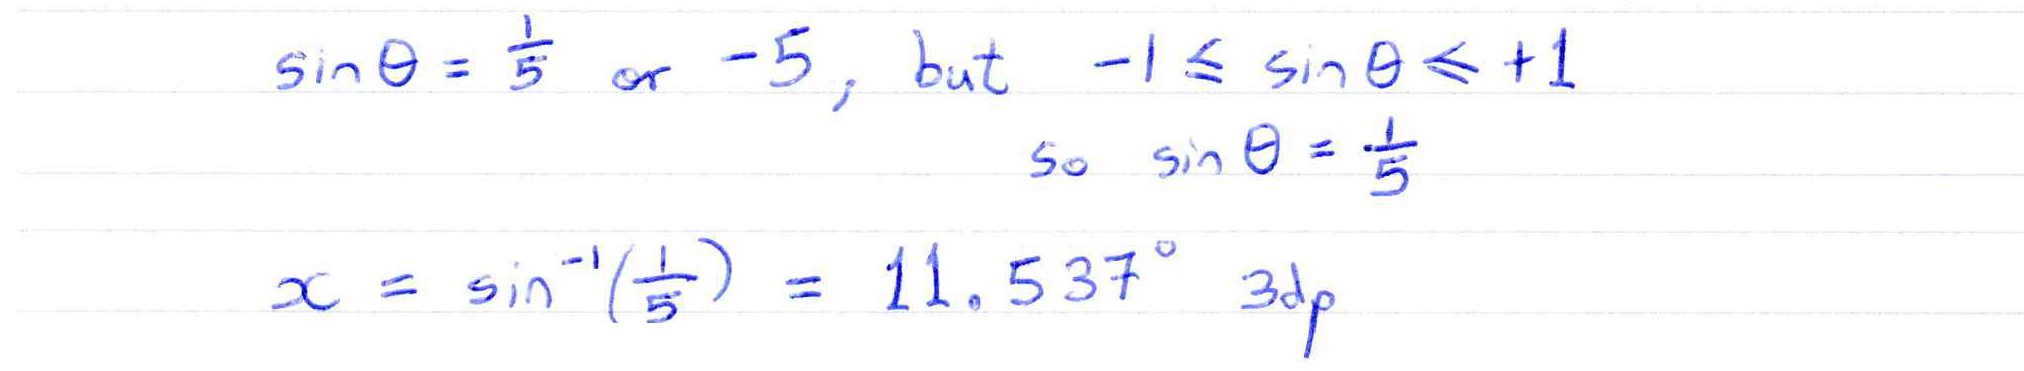 sin θ = 1/5 or -5, but -1 ≤ sin θ ≤ +1
so sin θ = 1/5
x = sin⁻¹(1/5) = 11.537° 3dp